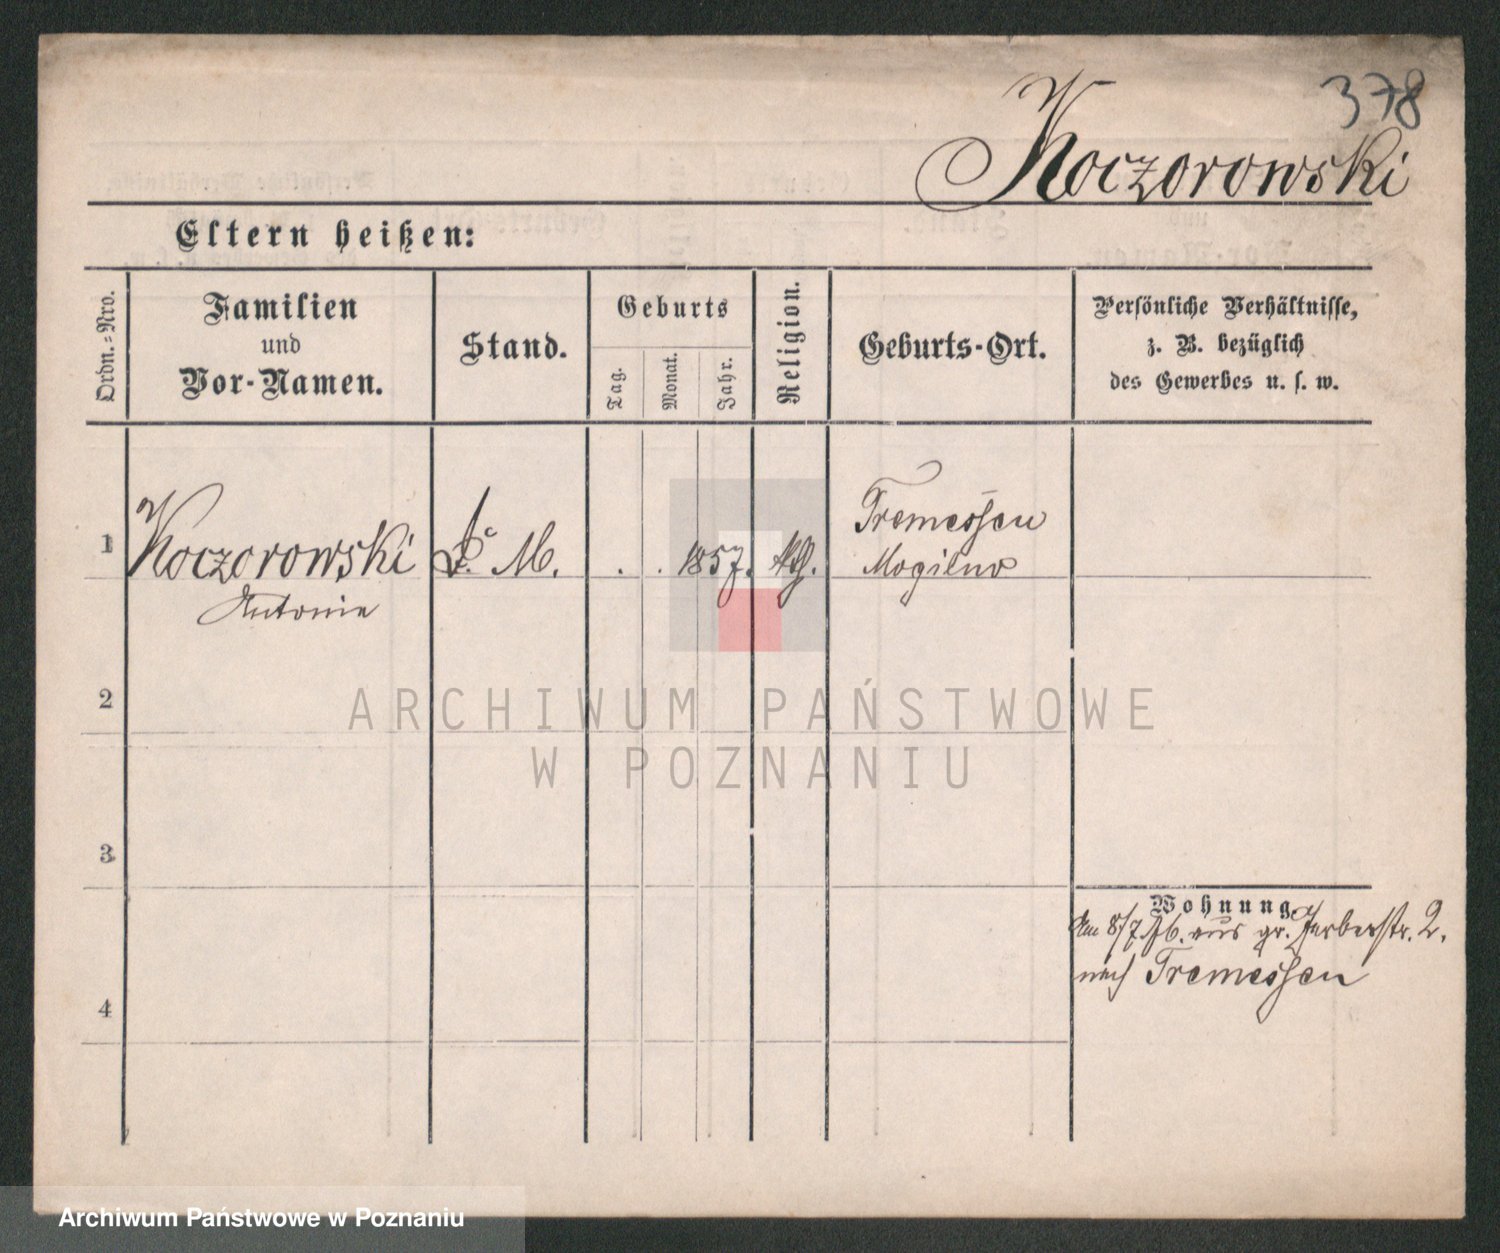 378
Koczorowski
Eltern heißen:
Ordn.-Nro.
Familien
und
Vor-Namen.
Stand.
Geburts
Tag.
Monat.
Jahr.
Religion.
Geburts-Ort.
Persönliche Verhältnisse,
z. B. bezüglich
des Gewerbes u. s. w.
1
Koczorowski
Antonie
M.
1857.
Kth.
Tremessen
Mogilno
2
ARCHIWUM PAŃSTWOWE
W POZNANIU
3
Wohnung
Am 8/7 76. aus gr. Gerberstr. 2.
nach Tremessen
4
Archiwum Państwowe w Poznaniu